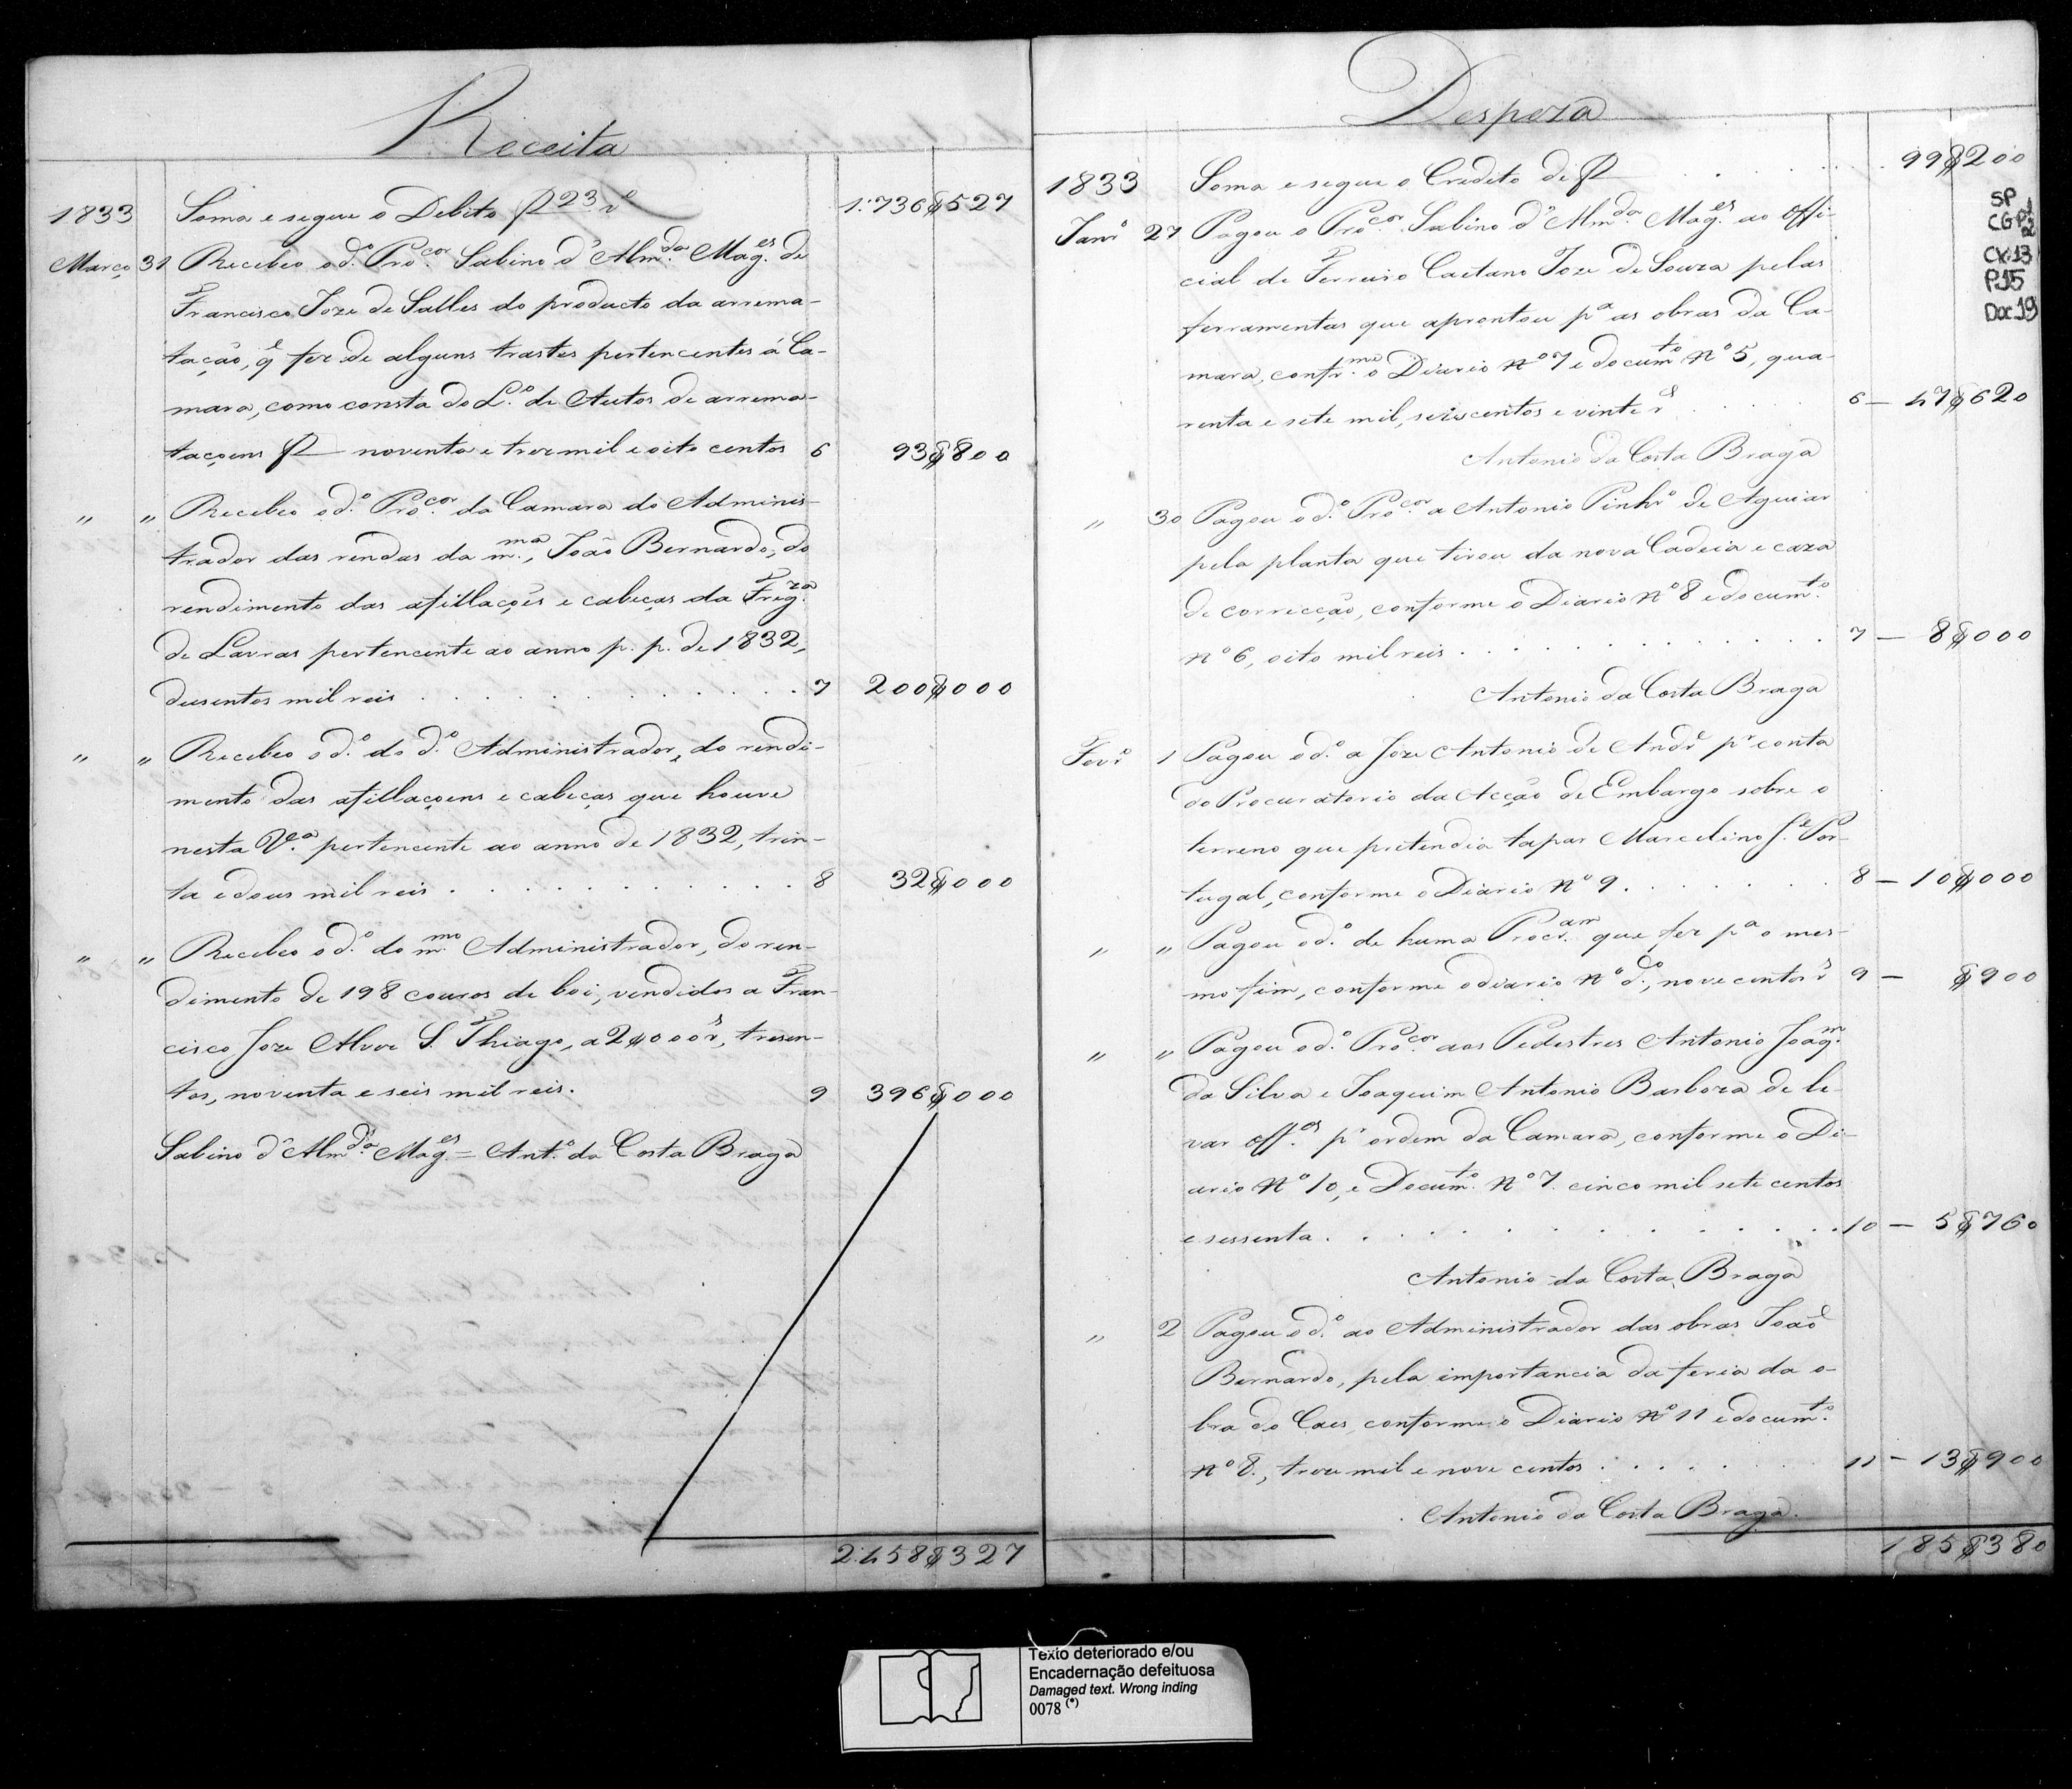 Receita
1833 Soma e segue o Debito f 23 vº 1:736$527
Março 31 Recebeo o dº Procor Sabino d'Almda Mages de
Francisco Joze de Salles do producto da arrema-
tação, q̃ fez de alguns trastes pertencentes á Ca-
mara, como consta do Lº de Autos de arrema-
taçoens f noventa e trez mil e oito centos 6 93$800
" " Recebeo o dº Procor da Camara do Adminis-
trador das rendas da mma, João Bernardo, do
rendimento das afillações e cabeças da Fregza
de Lavras pertencente ao anno p. p. de 1832,
dusentos mil reis . . . . . . . . . . . . 7 200$000
" " Recebeo o dº do dº Administrador, do rendi-
mento das afillaçoens e cabeças que houve
nesta Vª pertencente ao anno de 1832, trin-
ta e dous mil reis . . . . . . . . . . . 8 32$000
" " Recebeo o dº do mmo Administrador, do ren-
dimento de 198 couros de boi, vendidos a Fran-
cisco Joze Alves S. Thiago, a 2$000 rs, tresen-
tos, noventa e seis mil reis. 9 396$000
Sabino d'Almda Mages = Antº da Costa Braga
2:458$327
Despeza
1833 Soma e segue o Credito de f . . . . . . 99$200
SP
CGP1
2
CX:13
P.15
Doc.19
Janrº 27 Pagou o Procor Sabino d'Almda Mages ao offi-
cial de Ferreiro Caetano Joze de Souza pelas
ferramentas que aprontou pª as obras da Ca-
mara, confrme o Diario Nº 7 e documto Nº 5, qua-
renta e sete mil, seiscentos e vinte rs . . . . 6 — 47$620
Antonio da Costa Braga
" 30 Pagou o dº Procor a Antonio Pinhrº de Aguiar
pela planta que tirou da nova Cadeia e caza
de correcção, conforme o Diario Nº 8 e documto
Nº 6, oito mil reis . . . . . . . . . . . . 7 — 8$000
Antonio da Costa Braga
Fevrº 1 Pagou o dº a Joze Antonio de Andre pr conta
do Procuratorio da Acção de Embargo sobre o
terreno que pretendia tapar Marcelino Je Por-
tugal, conforme o Diario Nº 9 . . . . . . . 8 — 10$000
" " Pagou o dº de huma Procram que fez pª o mes-
mo fim, conforme o diario Nº dº, nove centos rs 9 — $900
" " Pagou o dº Procor aos Pedestres Antonio Joaqm
da Silva e Joaquim Antonio Barboza de le-
var offes pr ordem da Camara, conforme o Di-
ario Nº 10, e Documto Nº 7. cinco mil sete centos
e sessenta . . . . . . . . . . . . . . . 10 — 5$760
Antonio da Costa Braga
" 2 Pagou o dº ao Administrador das obras João
Bernardo, pela importancia da feria da o-
bra do Caes, conforme o Diario Nº 11 e documto
Nº 8., treze mil e nove centos . . . . . . . 11 — 13$900
Antonio da Costa Braga.
185$380
Texto deteriorado e/ou
Encadernação defeituosa
Damaged text. Wrong inding
0078 (*)